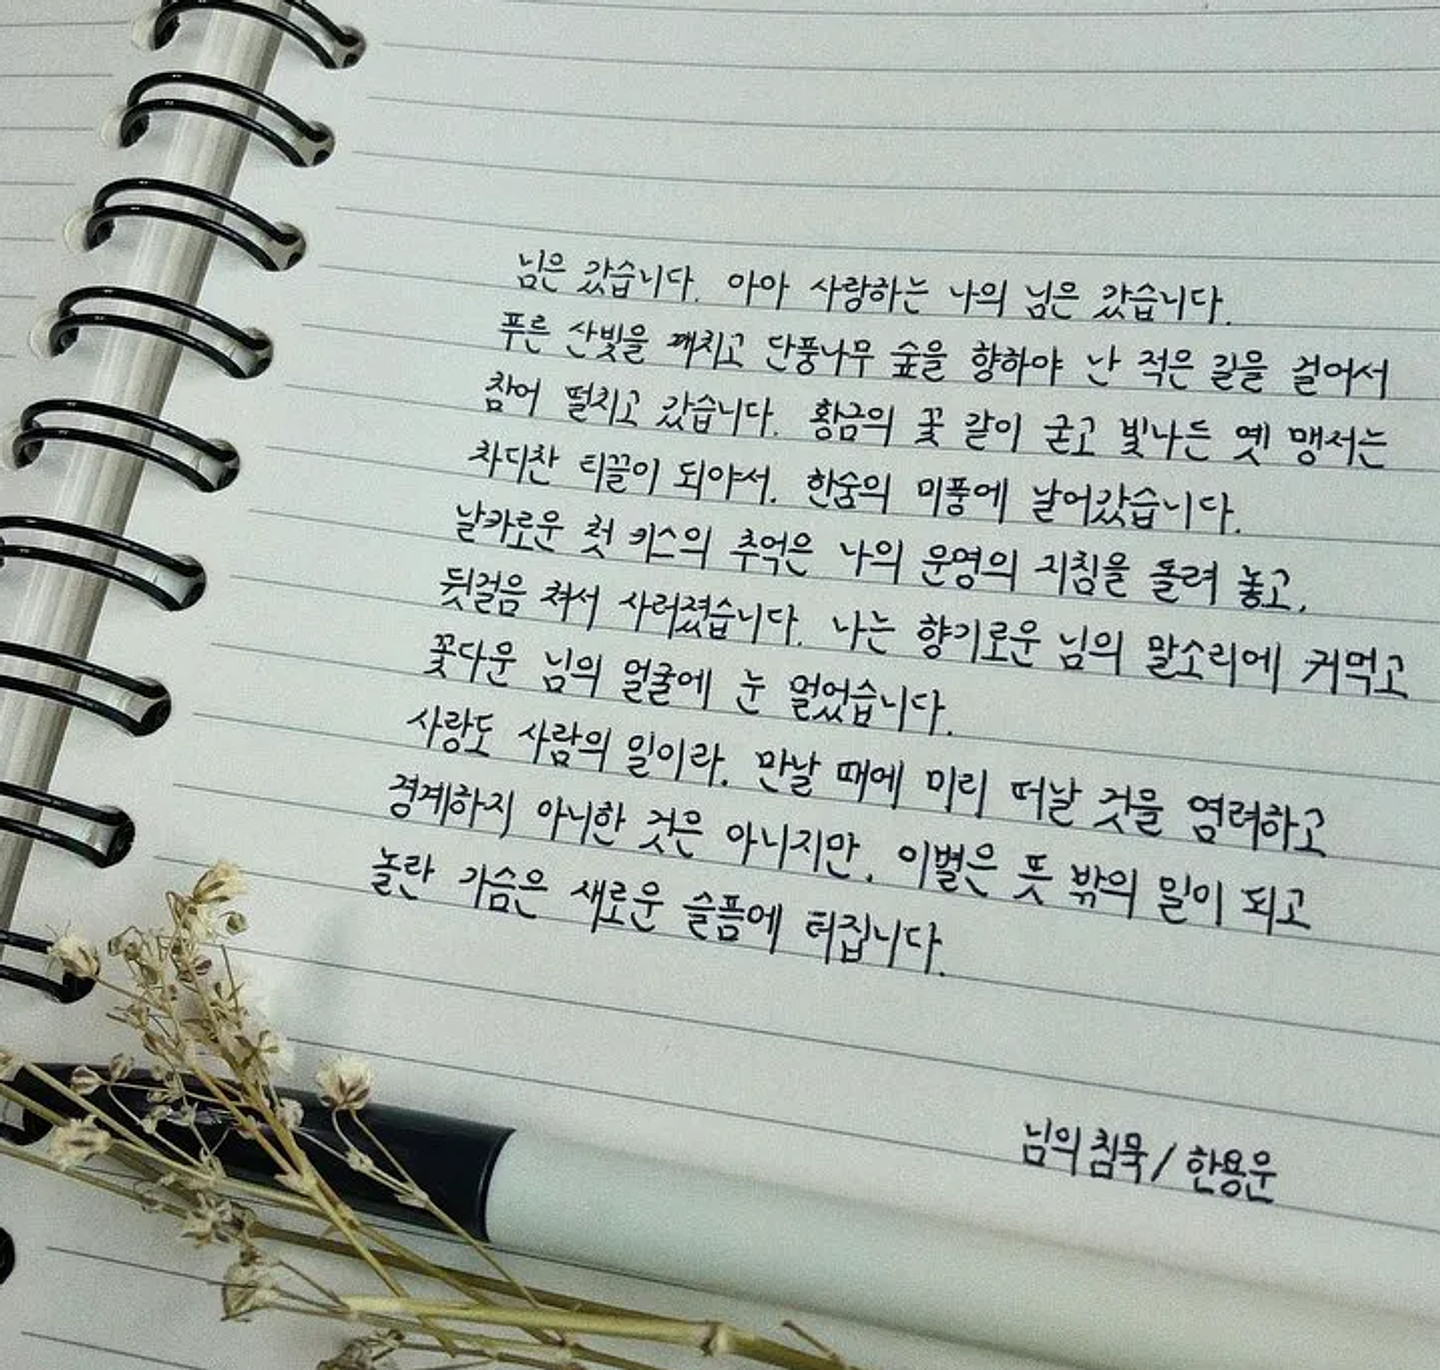 님은 갔습니다. 아아 사랑하는 나의 님은 갔습니다.
푸른 산빛을 깨치고 단풍나무 숲을 향하야 난 적은 길을 걸어서
참어 떨치고 갔습니다. 황금의 꽃 같이 굳고 빛나든 옛 맹서는
차디찬 티끌이 되야서. 한숨의 미풍에 날어갔습니다.
날카로운 첫 키스의 추억은 나의 운명의 지침을 돌려 놓고,
뒷걸음 쳐서 사러졌습니다. 나는 향기로운 님의 말소리에 커먹고
꽃다운 님의 얼굴에 눈 멀었습니다.
사랑도 사람의 일이라. 만날 때에 미리 떠날 것을 염려하고
경계하지 아니한 것은 아니지만, 이별은 뜻 밖의 일이 되고
놀란 가슴은 새로운 슬픔에 터집니다.
님의 침묵 / 한용운